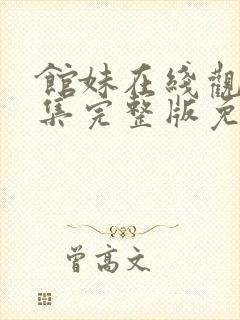 館妹在綫觀
集完整版免
曾高文